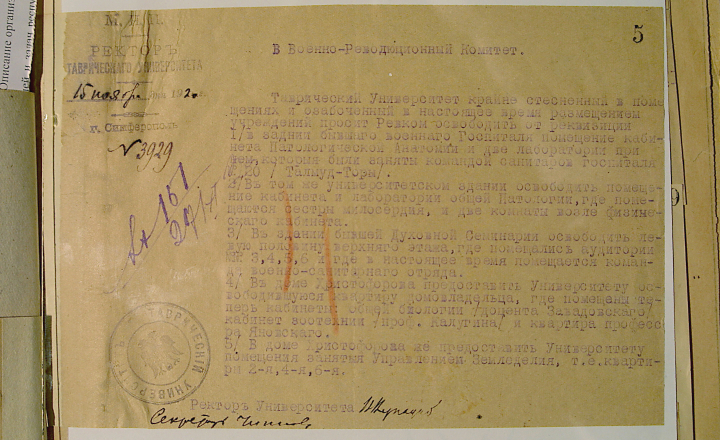 5
М. Н. П.
РЕКТОРЪ
ТАВРИЧЕСКАГО УНИВЕРСИТЕТА
15 ноября 192
г. Симферополь
№ 3929
В Военно-Революционный Комитет.
Таврический Университет крайне стесненный в поме
щениях и озабоченный в настоящее время размещением
учреждений просит Ревком освободить от реквизиции
1/в здании бывшего военного Госпиталя помещение каби
нета Патологической Анатомии и две лаборатории при
нем, которыя были заняты командой санитаров госпиталя
20 / Талмуд-Торы/.
2/Въ том же университетском здании освободить помеще-
ние кабинета и лаборатории общей Патологии, где поме-
щаются сестры милосердая, и две комнаты возле физиче-
скаго кабинета.
3/ Въ здании бывшей Духовной Семинарии освободить ле-
вую половину верхняго этажа, где помещались аудитории
№№ 3,4,5,6 и где в настоящее время помещается коман-
да военно-санитарного отряда.
4/ Въ доме Христофорова предоставить Университету ос-
вободившуюся квартиру домовладельца, где помещены те-
перь кабинеты общей биологии /доцента Завадовскаго/
кабинет зоотехнии /проф. Калугина/ и квартира професс
ра Яновскаго.
5/ В доме ристофорова же предоставить Университету
помещения занятыя Управлением Земледелия, т.е. кварти-
ры 2-я, 4-я, 6-я.
Ректор Университета
Секретарь
161
ТАВРИЧЕСКИЙ УНИВЕРСИТЕТЪ
Описание органи